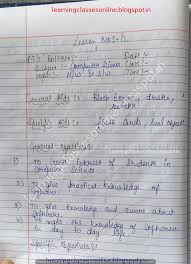 learningclassesonline.blogspot.com
Lesson No:-
P.T's Roll No:- Date:-
Subject:- Computer Science Class:-
Topic:- H/W & S/W Time:-
General Aids :- Black Board, duster,
Specific Aids :- Flash Cards, Real object
General objectives:-
1) To create interest of students in
Computer Science
2) To give practical knowledge of
software
3) To give knowledge and aware about
software.
4) To make the knowledge of software
in day to day life.
Specific objectives:-